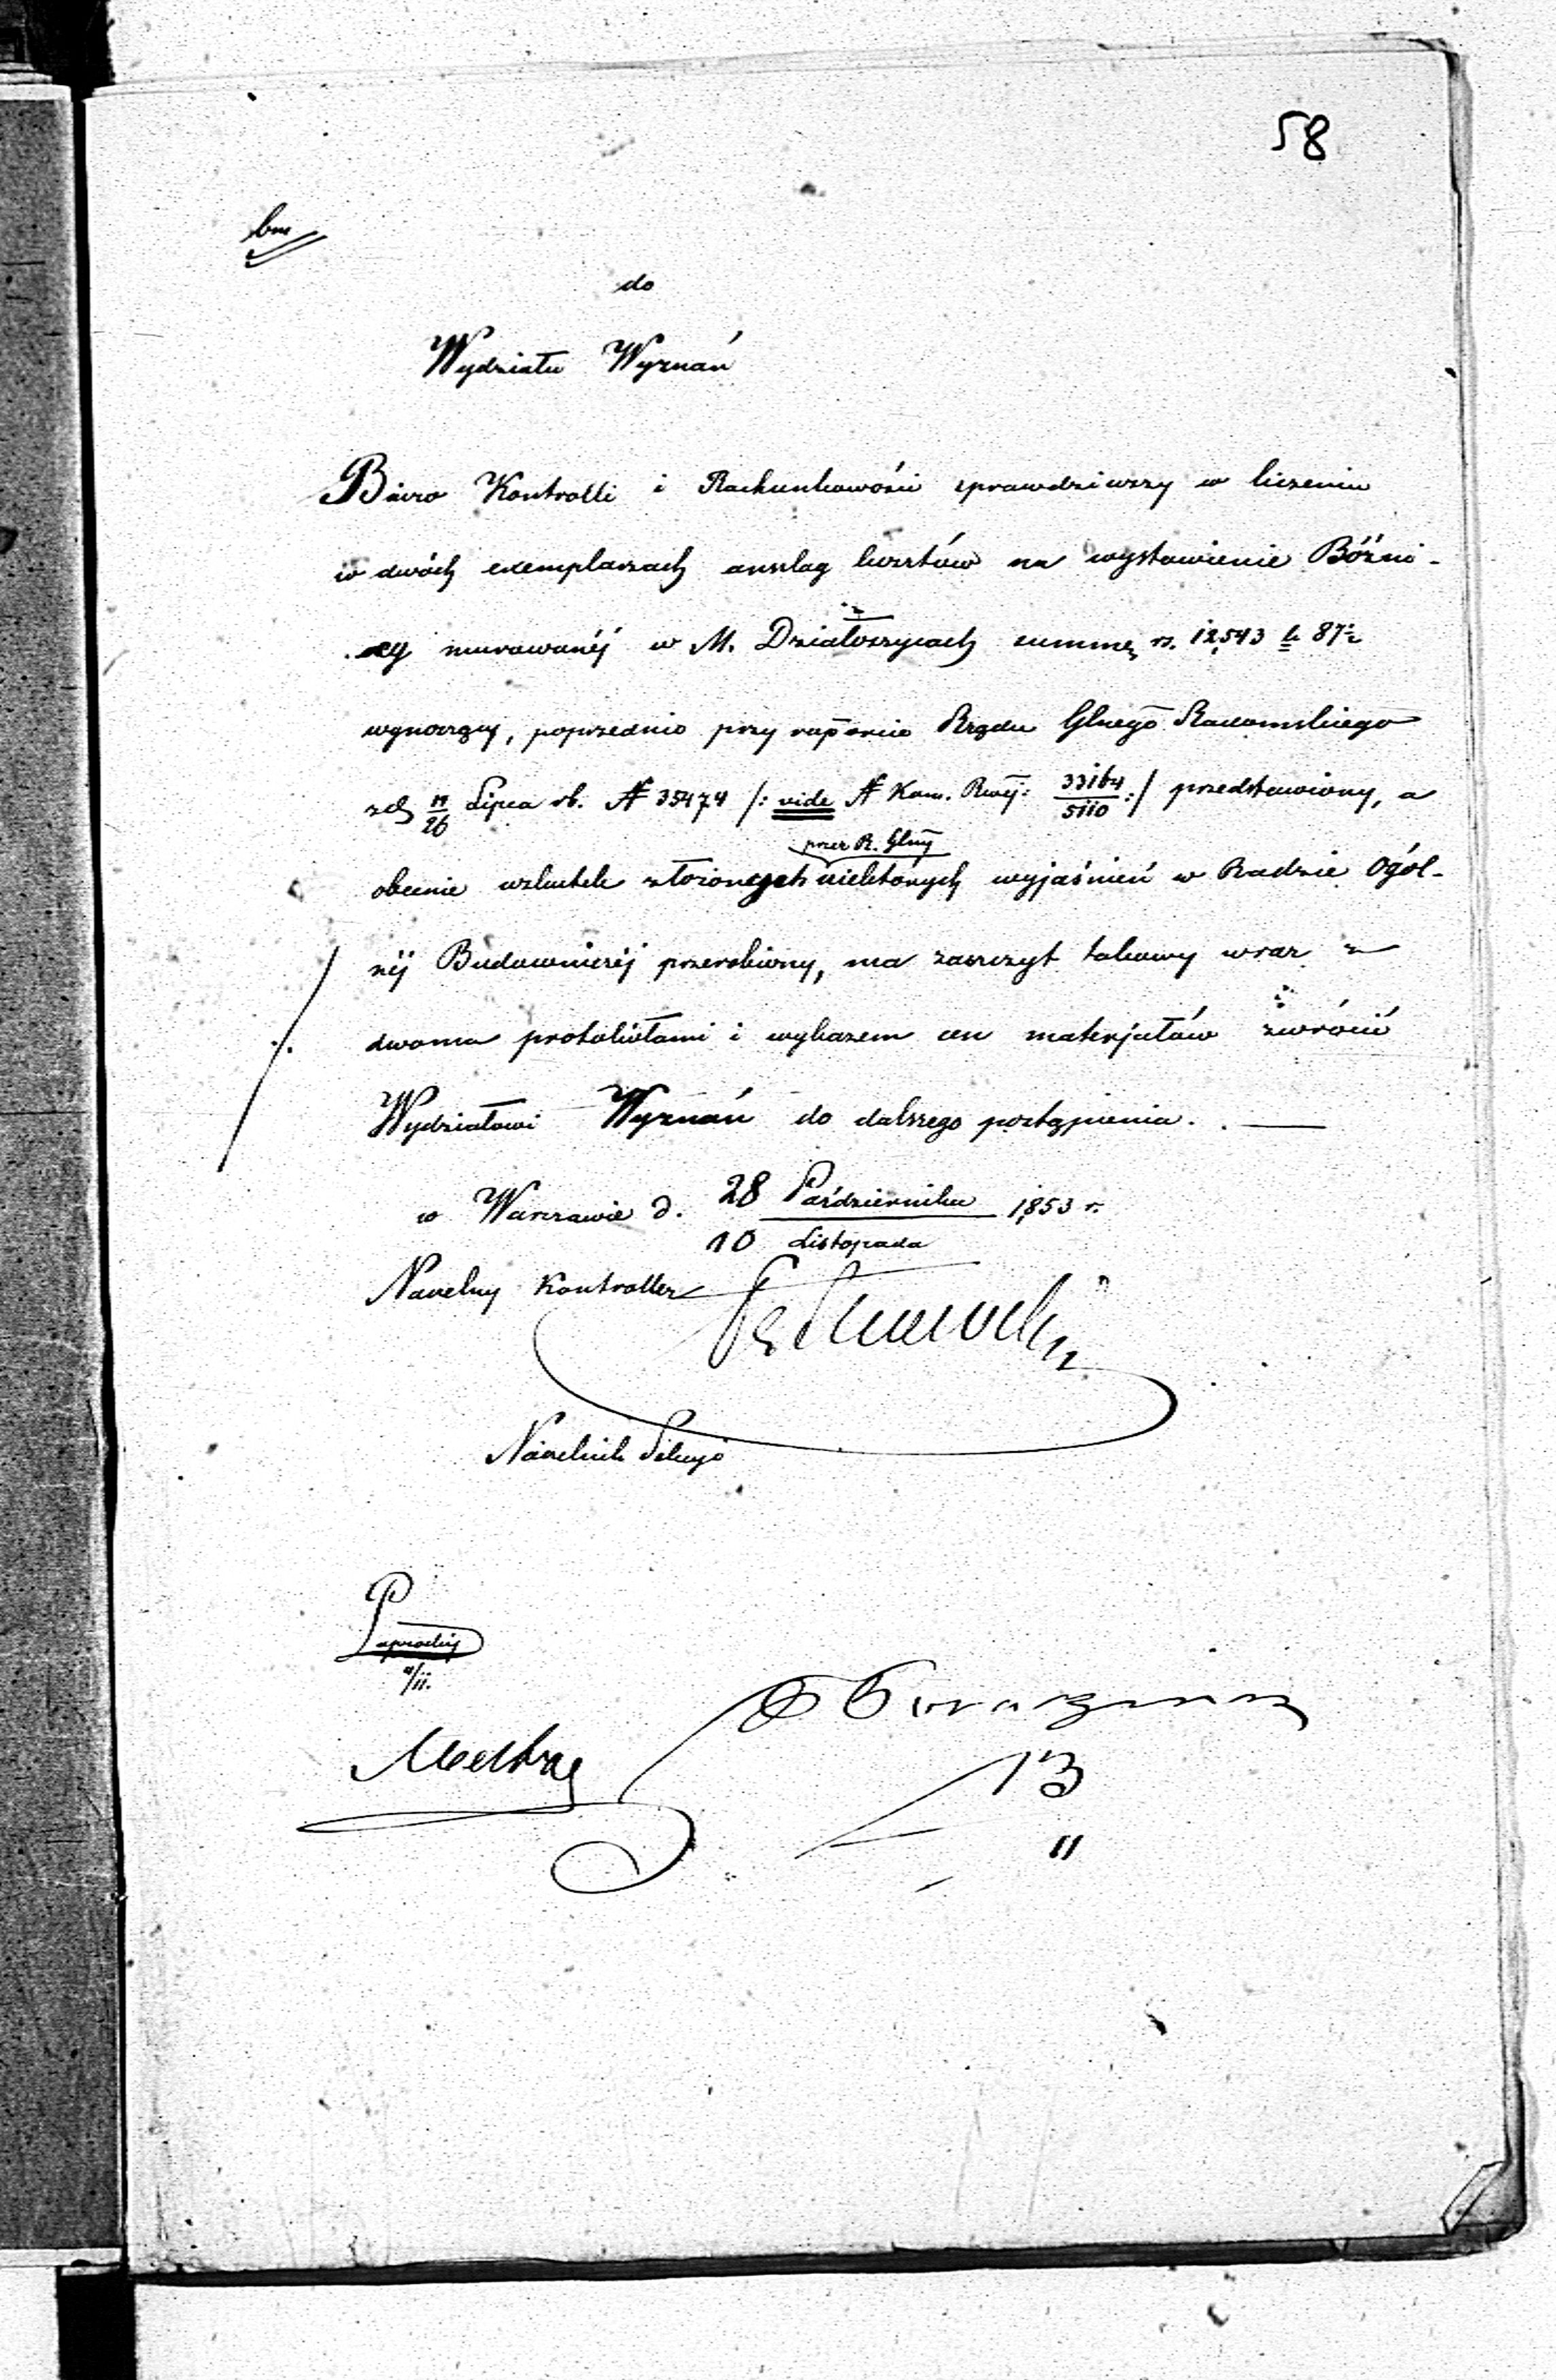 58
do
Wydziału Wyznań
Biuro Kontrolli i Rachunkowości sprawdziwszy w liczeniu
w dwóch exemplarzach anszlag kosztów na wystawienie Bóźni-
cy murowanéj w M. Działoszycach summę rs. 12,543 k 87½
wynoszący, poprzednio przy raporcie Rządu Glnego Radomskiego
z d 14/26 Lipca rb. N 35474 /: vide N Kom. Rząj: 33164/5110 :/ przedstawiony, a
przez R. Glny
obecnie wskutek złożonych niektórych wyjaśnień w Radzie Ogól-
néj Budowniczéj przerobiony, ma zaszczyt takowy wraz z
dwoma protokółami i wykazem cen materjałów zwrócić
Wydziałowi Wyznań do dalszego postąpienia.
w Warszawie d. 28 Października 1853 r.
10 Listopada
Naczelny Kontroller
Naczelnik Sekcyi
Paprocki
11.
13
11